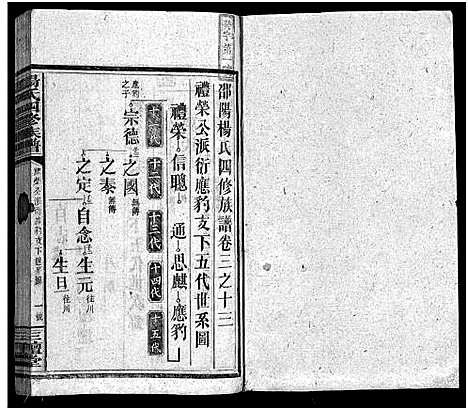 邵陽楊氏四修族譜卷三之十三
禮榮公派衍應豹支下五代世系圖
禮榮 信聰 通 思麒 應豹
十一代 十二代 十三代 十四代 十五代
應豹之子 宗德 之國 無傳
之泰 無傳
之定 自念 生元 往川
生旦 往川
楊氏四修族譜
三鱣堂